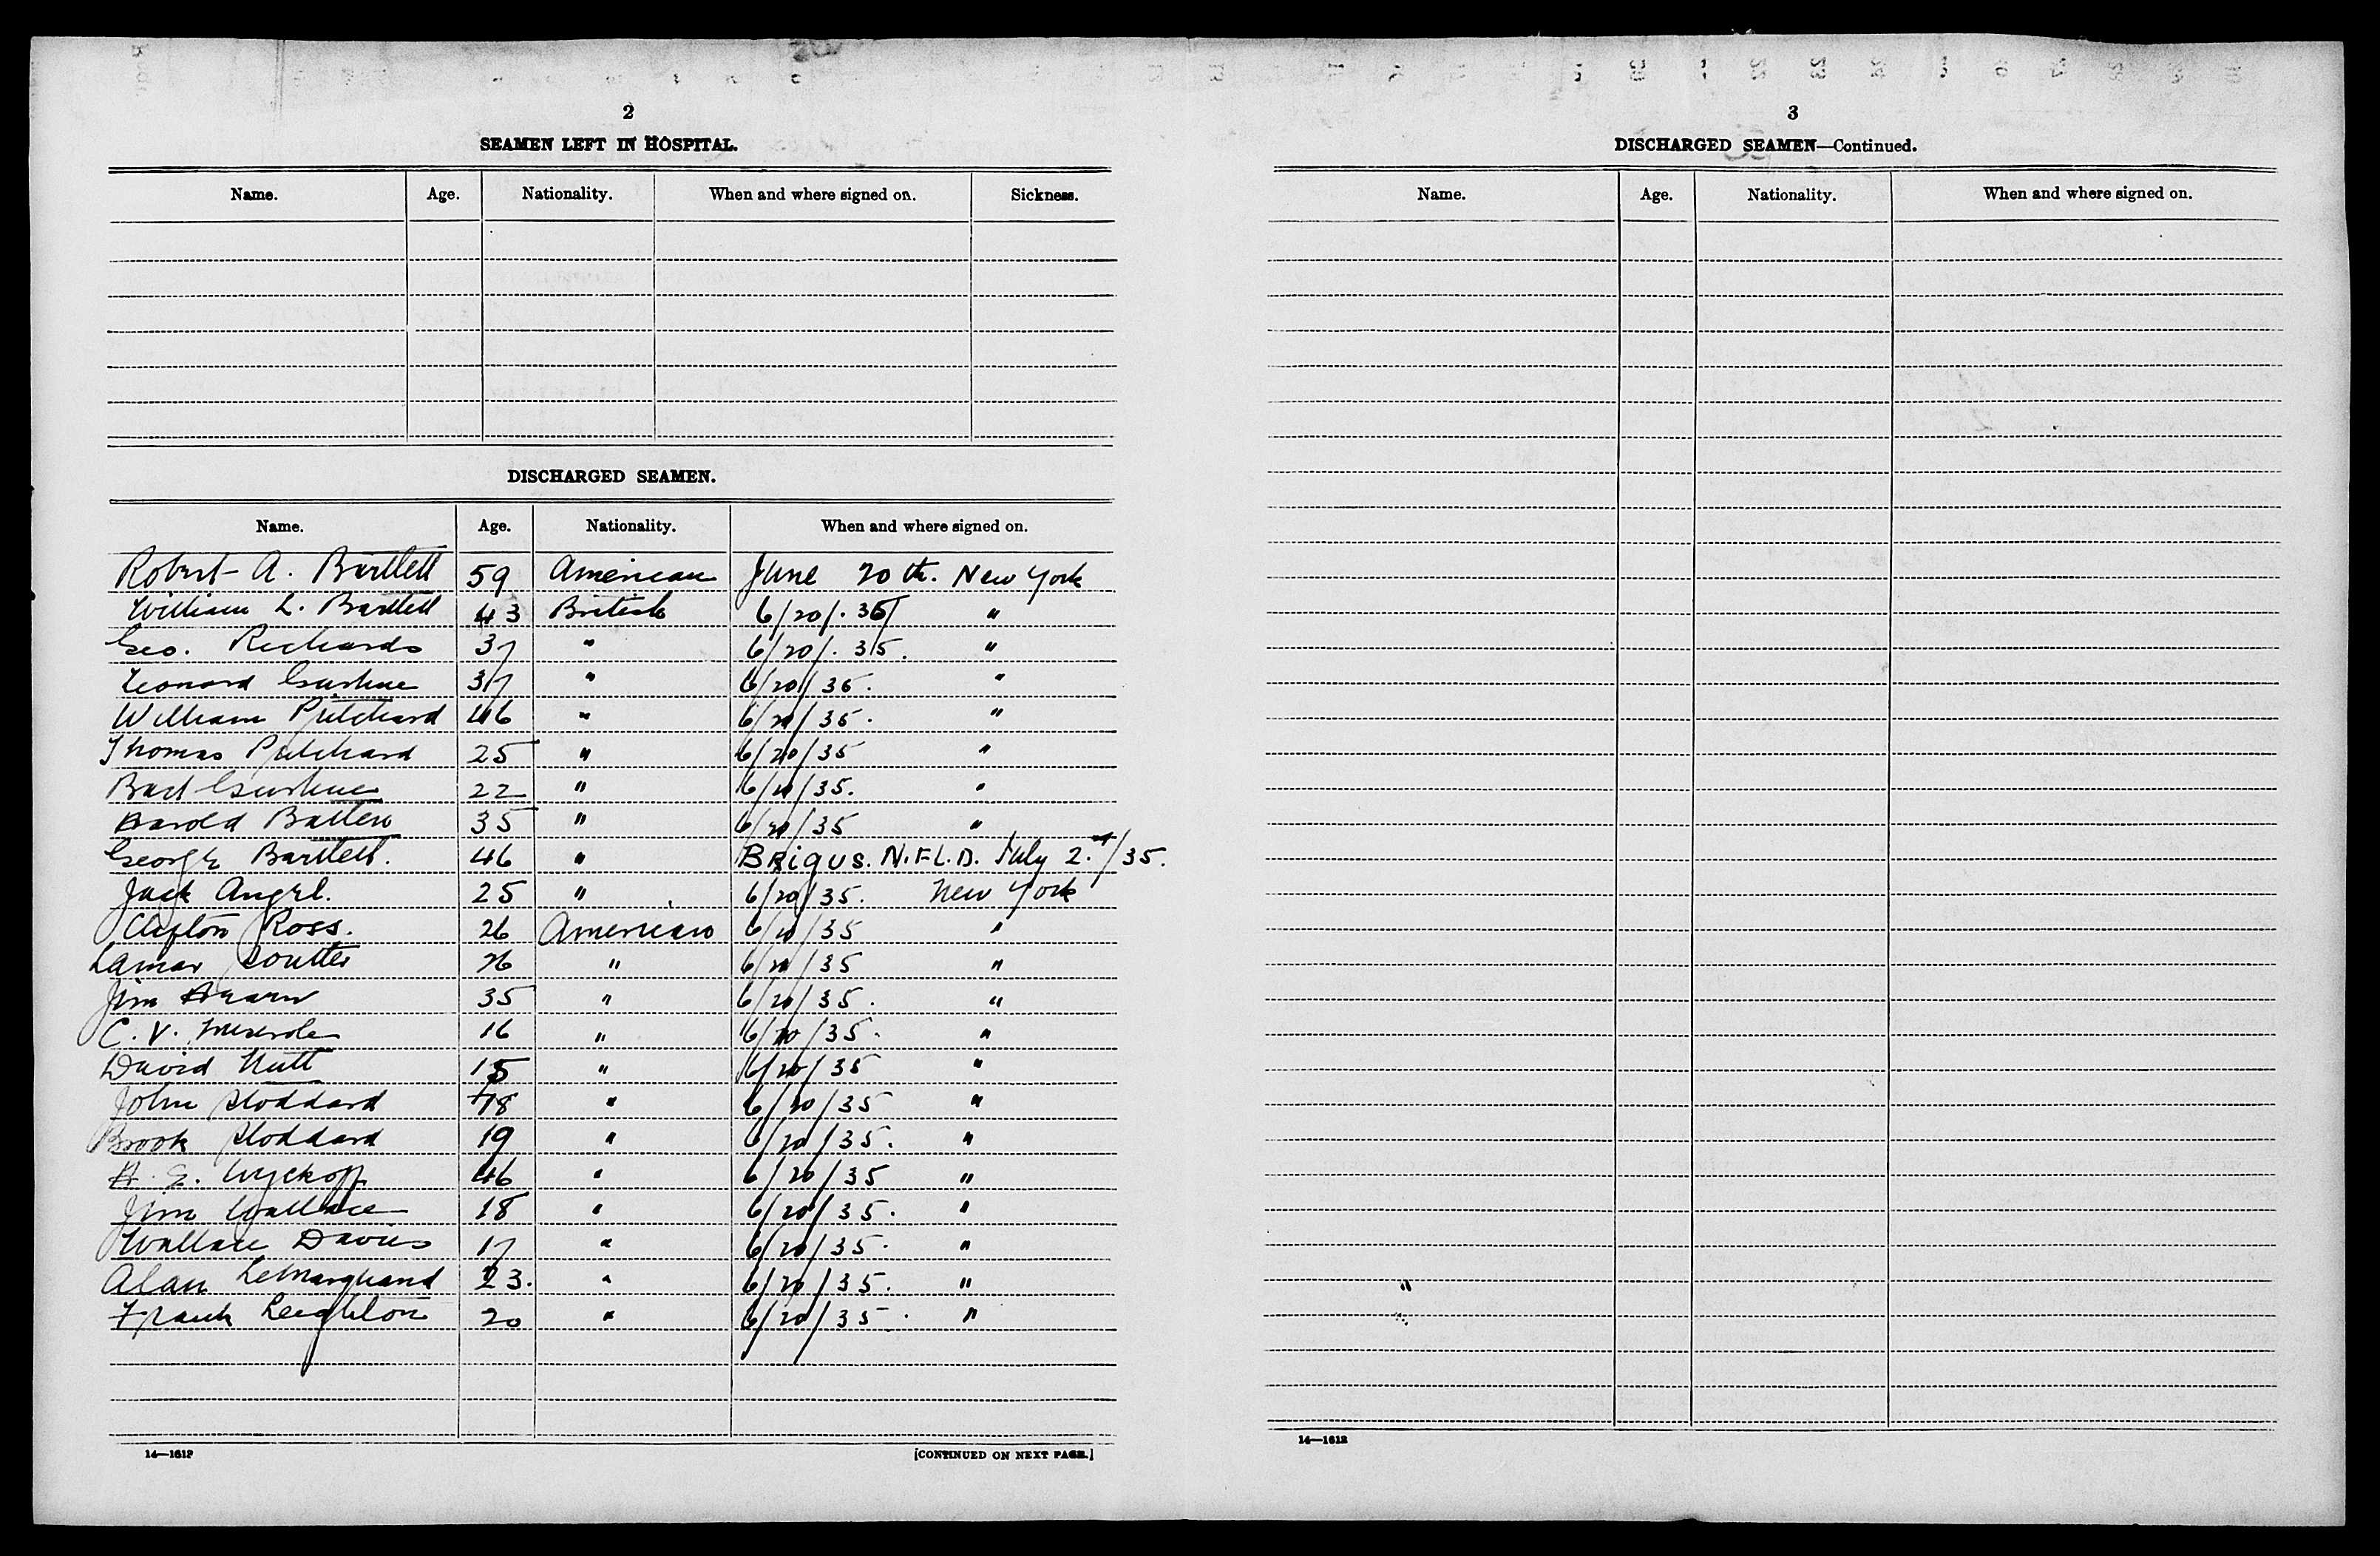 2
SEAMEN LEFT IN HOSPITAL.
Name. Age. Nationality. When and where signed on. Sickness.
DISCHARGED SEAMEN.
Name. Age. Nationality. When and where signed on.
Robert A. Bartlett 59 American June 20th. New York
William L. Bartlett 43 British 6/20/.35 "
Geo. Richards 37 " 6/20/.35. "
Leonard Gushue 37 " 6/20/35. "
William Pritchard 46 " 6/20/35. "
Thomas Pritchard 25 " 6/20/35 "
Bart Gushue 22 " 6/20/35. "
Harold Batten 35 " 6/20/35 "
George Bartlett. 46 " BRIGUS. N.F.L.D. July 2./35.
Jack Angel. 25 " 6/20/35. New York
Clifton Ross. 26 American 6/20/35 "
Lamar Soutter 26 " 6/20/35 "
Jim Hearn 35 " 6/20/35. "
C. V. 16 " 6/20/35. "
David Nutt 15 " 6/20/35 "
John Stoddard 18 " 6/20/35 "
Brook Stoddard 19 " 6/20/35. "
H. G. Wyckoff 46 " 6/20/35 "
Jim Wallace 18 " 6/20/35. "
Wallace Davies 17 " 6/20/35. "
Alan LeMarquand 23. " 6/20/35. "
Frank Leighton 20 " 6/20/35. "
14—1612 [CONTINUED ON NEXT PAGE.]
3
DISCHARGED SEAMEN—Continued.
Name. Age. Nationality. When and where signed on.
"
14—1612